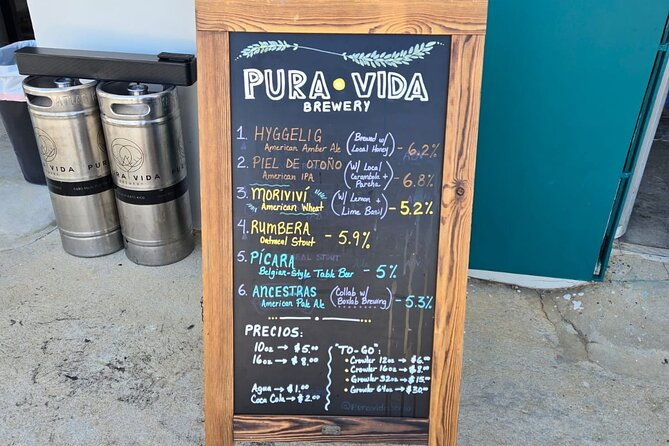 PURA VIDA
BREWERY
1. HYGGELIG (Brewed w/ Local Honey) - 6.2%
American Amber Ale
2. PIEL DE OTOÑO (w/ Local Carambola + Parcha) - 6.8%
American IPA
3. MORIVIVÍ (w/ Lemon + Lime Basil) - 5.2%
American Wheat
4. RUMBERA
Oatmeal Stout - 5.9%
5. PÍCARA
Belgian-Style Table Beer - 5%
6. ANCESTRAS (Collab w/ Boxlab Brewing) - 5.3%
American Pale Ale
PRECIOS:
10oz → $5.00
16oz → $8.00
Agua → $1.00
Coca Cola → $2.00
"TO-GO":
• Crowler 12oz → $6.00
• Crowler 16oz → $8.00
• Growler 32oz → $15.00
• Growler 64oz → $30.00
PURA VIDA
BREWERY